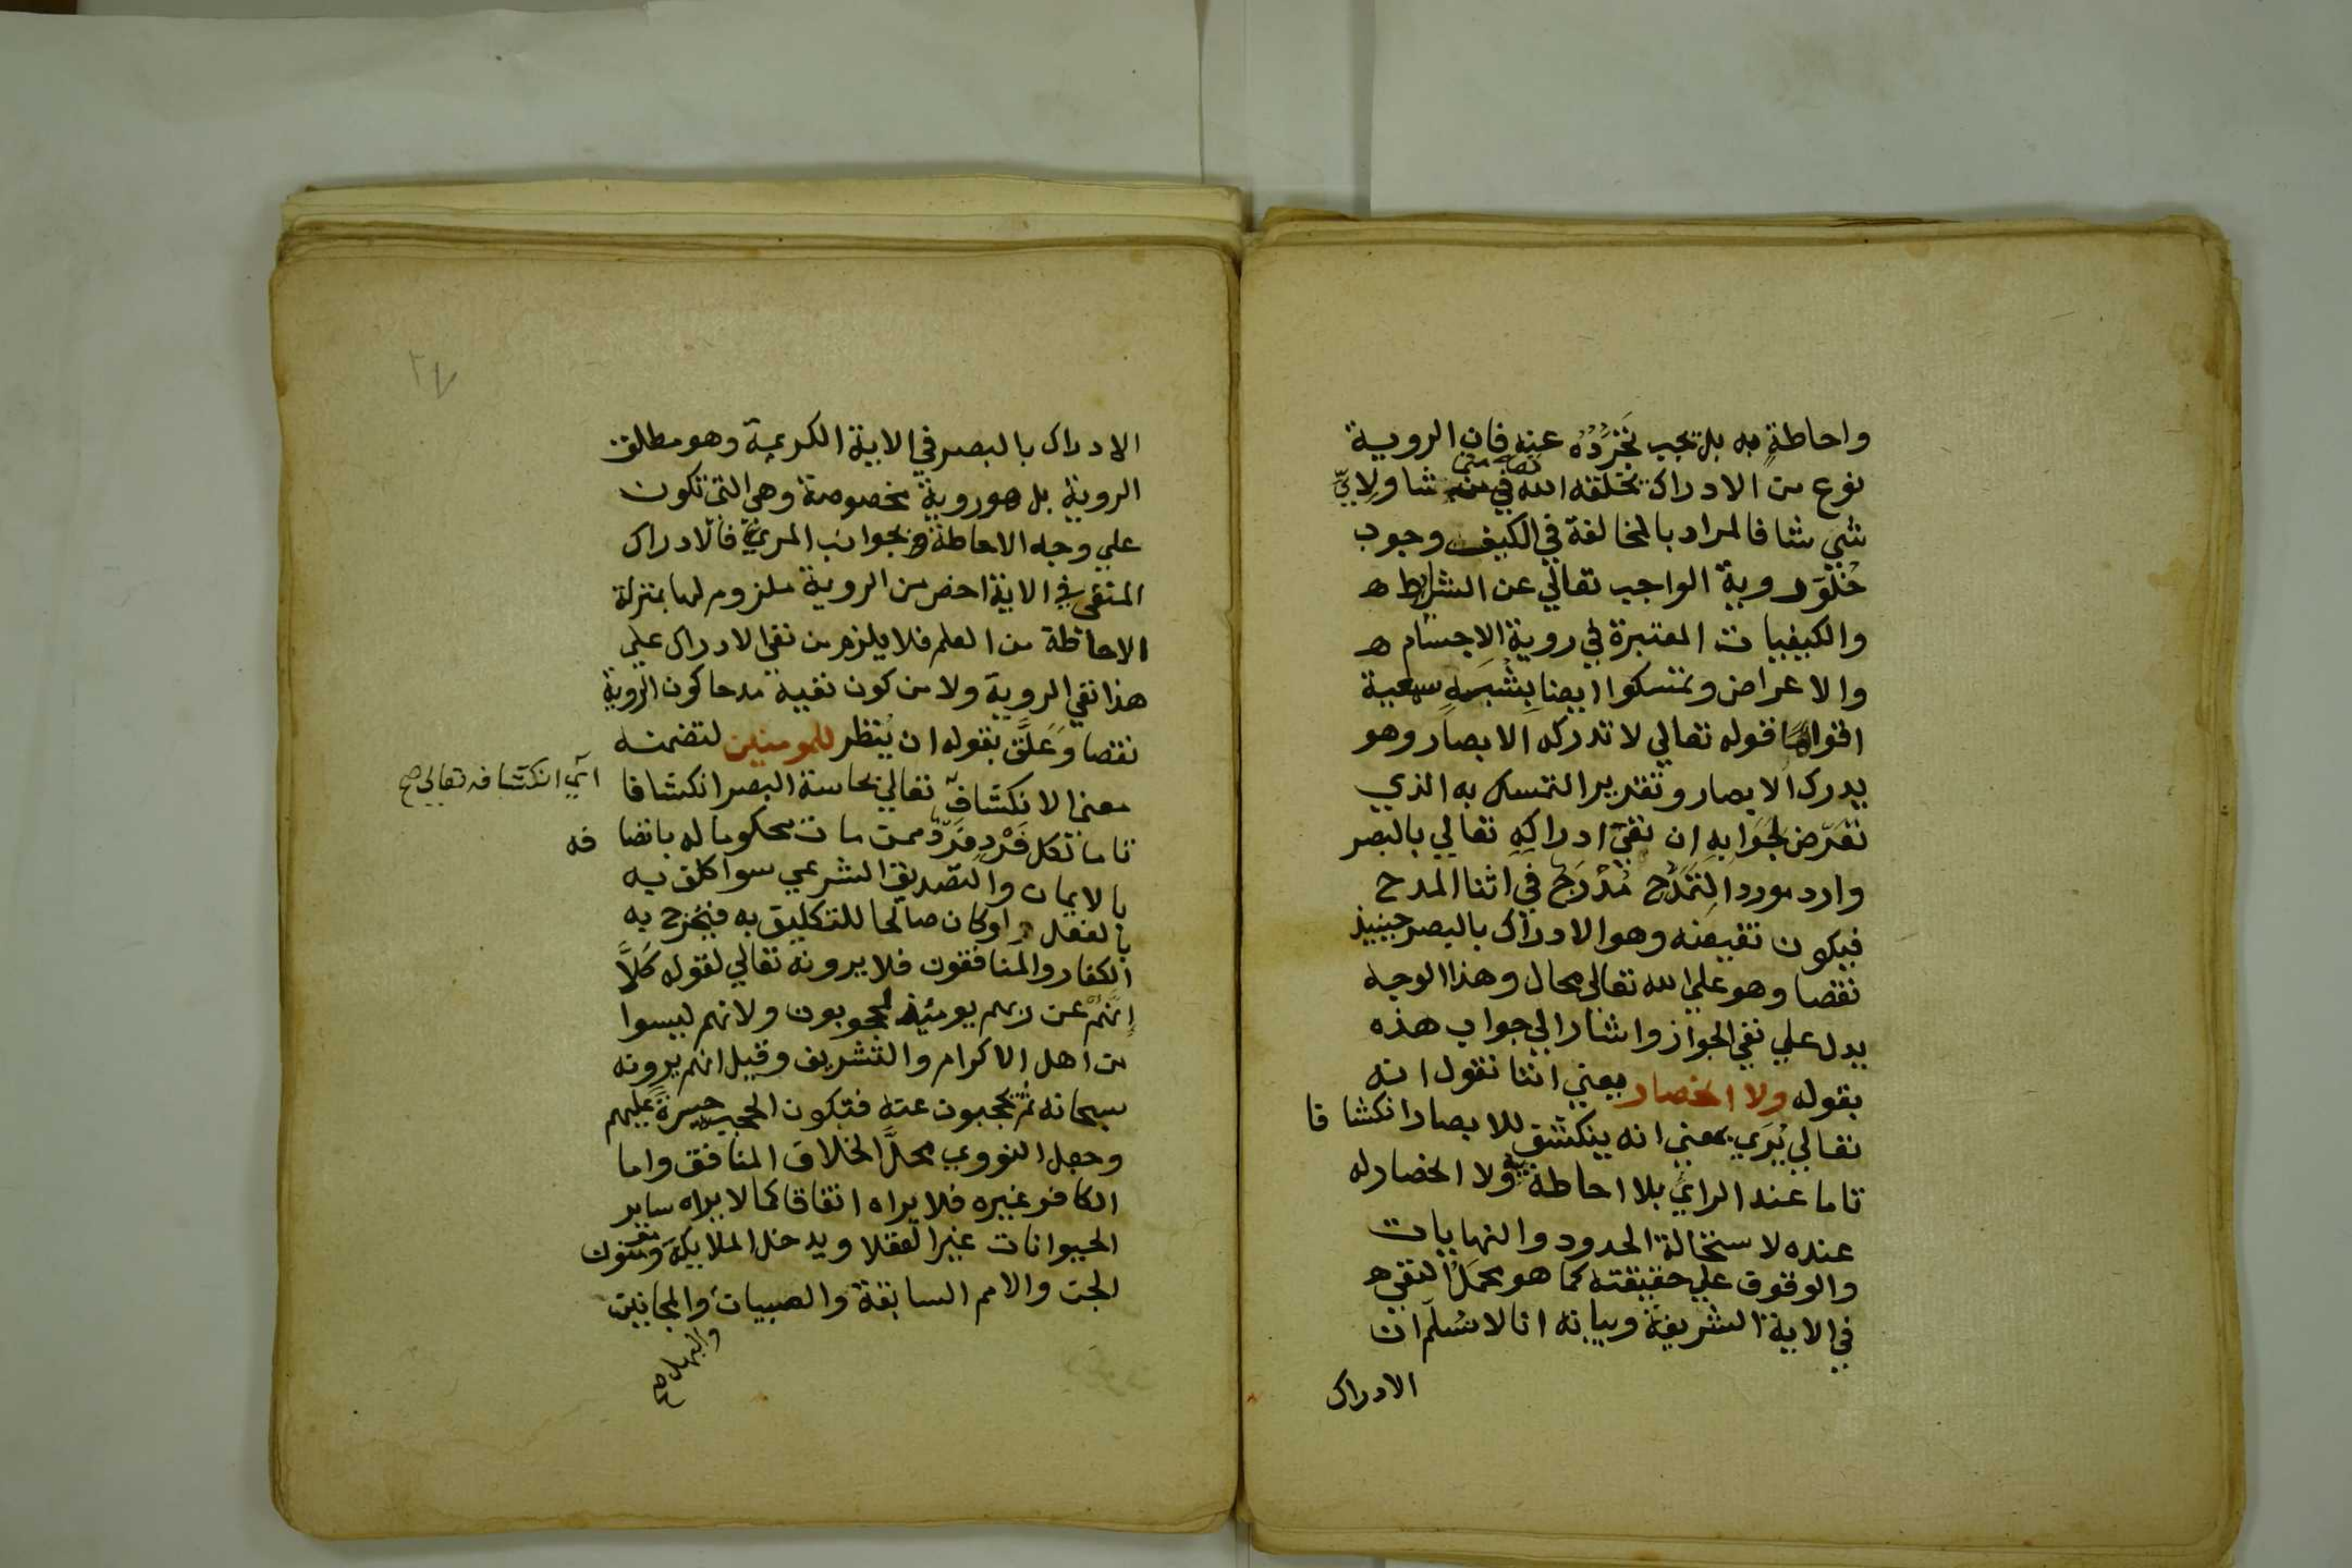 واحاطةٍ به بل يجب تَجَرُّدُه عنه فان الروية
نوع من الادراك يخلقه الله في شا ولايّ
شي شا فالمراد بالمخالفة في الكيف وجوب
خُلُوّ روية الواجب تعالي عن الشرايط ه
والكيفيات المعتبرة في روية الاجسام ه
والاعراض وتمسكوا ايضا بِشُبَهٍ سمعية
اقواها قوله تعالي لا تدركه الابصار وهو
يدرك الابصار وتقرير التمسك به الذي
تعرّض لجَوَابِهِ ان نفيَ ادراكِهِ تعالي بالبصر
وارد مورد التَمَدُّحِ مُدْرَجٌ في اثنا المدح
فيكون نقيضه وهو الادراك بالبصر حينيذ
نقصا وهو علي الله تعالي محال وهذا الوجه
يدل علي نفي الجواز واشار الي جواب هذه
بقوله ولا انحصار يعني اننا نقول انه
تعالي يُرَي بمعني انه ينكشف للابصار انكشافا
تاما عند الرايّ بلا احاطة به ولا انحصار له
عنده لاستحالة الحدود والنهايات
والوقوف علي حقيقته كما هو محملُ النفي ه
في الاية الشريفة وبيانه انا لا نسُلّم ان
الادراك
الادراك بالبصر في الاية الكريمة وهو مطلق
الروية بل هو روية مخصوصة وهي التي تكون
علي وجه الاحاطة بجوانب المريّ فالادراك
المنفي في الاية اخص من الروية ملزوم لها بمنزلة
الاحاطة من العلم فلا يلزم من نفي الادراك علي
هذا نفي الروية ولا من كون نفيه مدحا كون الروية
نقصا وَعَلَّقَ بقوله ان يُنظر للمومنين لتضمنه
معني الانكشاف تعالي بحاسة البصر انكشافا
اي انكشافه تعالي صح
تاما لكل فَرْدٍ فَرْدٍ ممن مات محكوما له باتصافه
بالايمان والتصديق الشرعي سوا كلف به
بالفعل او كان صالحا للتكليف به فيُخرج به
الكفار والمنافقون فلا يرونه تعالي لقوله كَلَّا
اِنَّهُمْ عن ربهم يومئذ لمحجوبون ولانهم ليسوا
من اهل الاكرام والتشريف وقيل انهم يرونه
سبحانه ثم يحجبون عنه فتكون الحجب حسرةً عليهم
وجعل النووي محلَّ الخلاف المنافق واما
الكافر غيره فلا يراه اتفاقا كما لا يراه ساير
الحيوانات غير العقلا ويدخل الملايكة ومومنون
الجن والامم السابقة والصبيان والمجانين
والبله صح